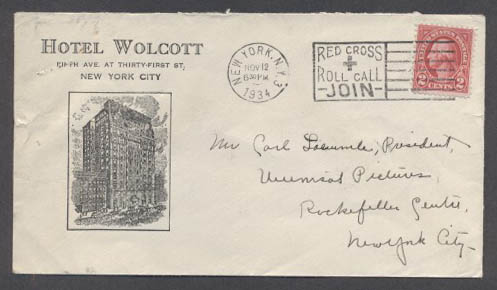 HOTEL WOLCOTT
FIFTH AVE. AT THIRTY-FIRST ST,
NEW YORK CITY
NEW YORK, N.Y. 3
NOV 12
1934
RED CROSS
ROLL CALL
JOIN
UNITED STATES POSTAGE
2 2
CENTS
Mr Carl Laemmle, President,
Universal Pictures,
Rockefeller Centre,
New York City.